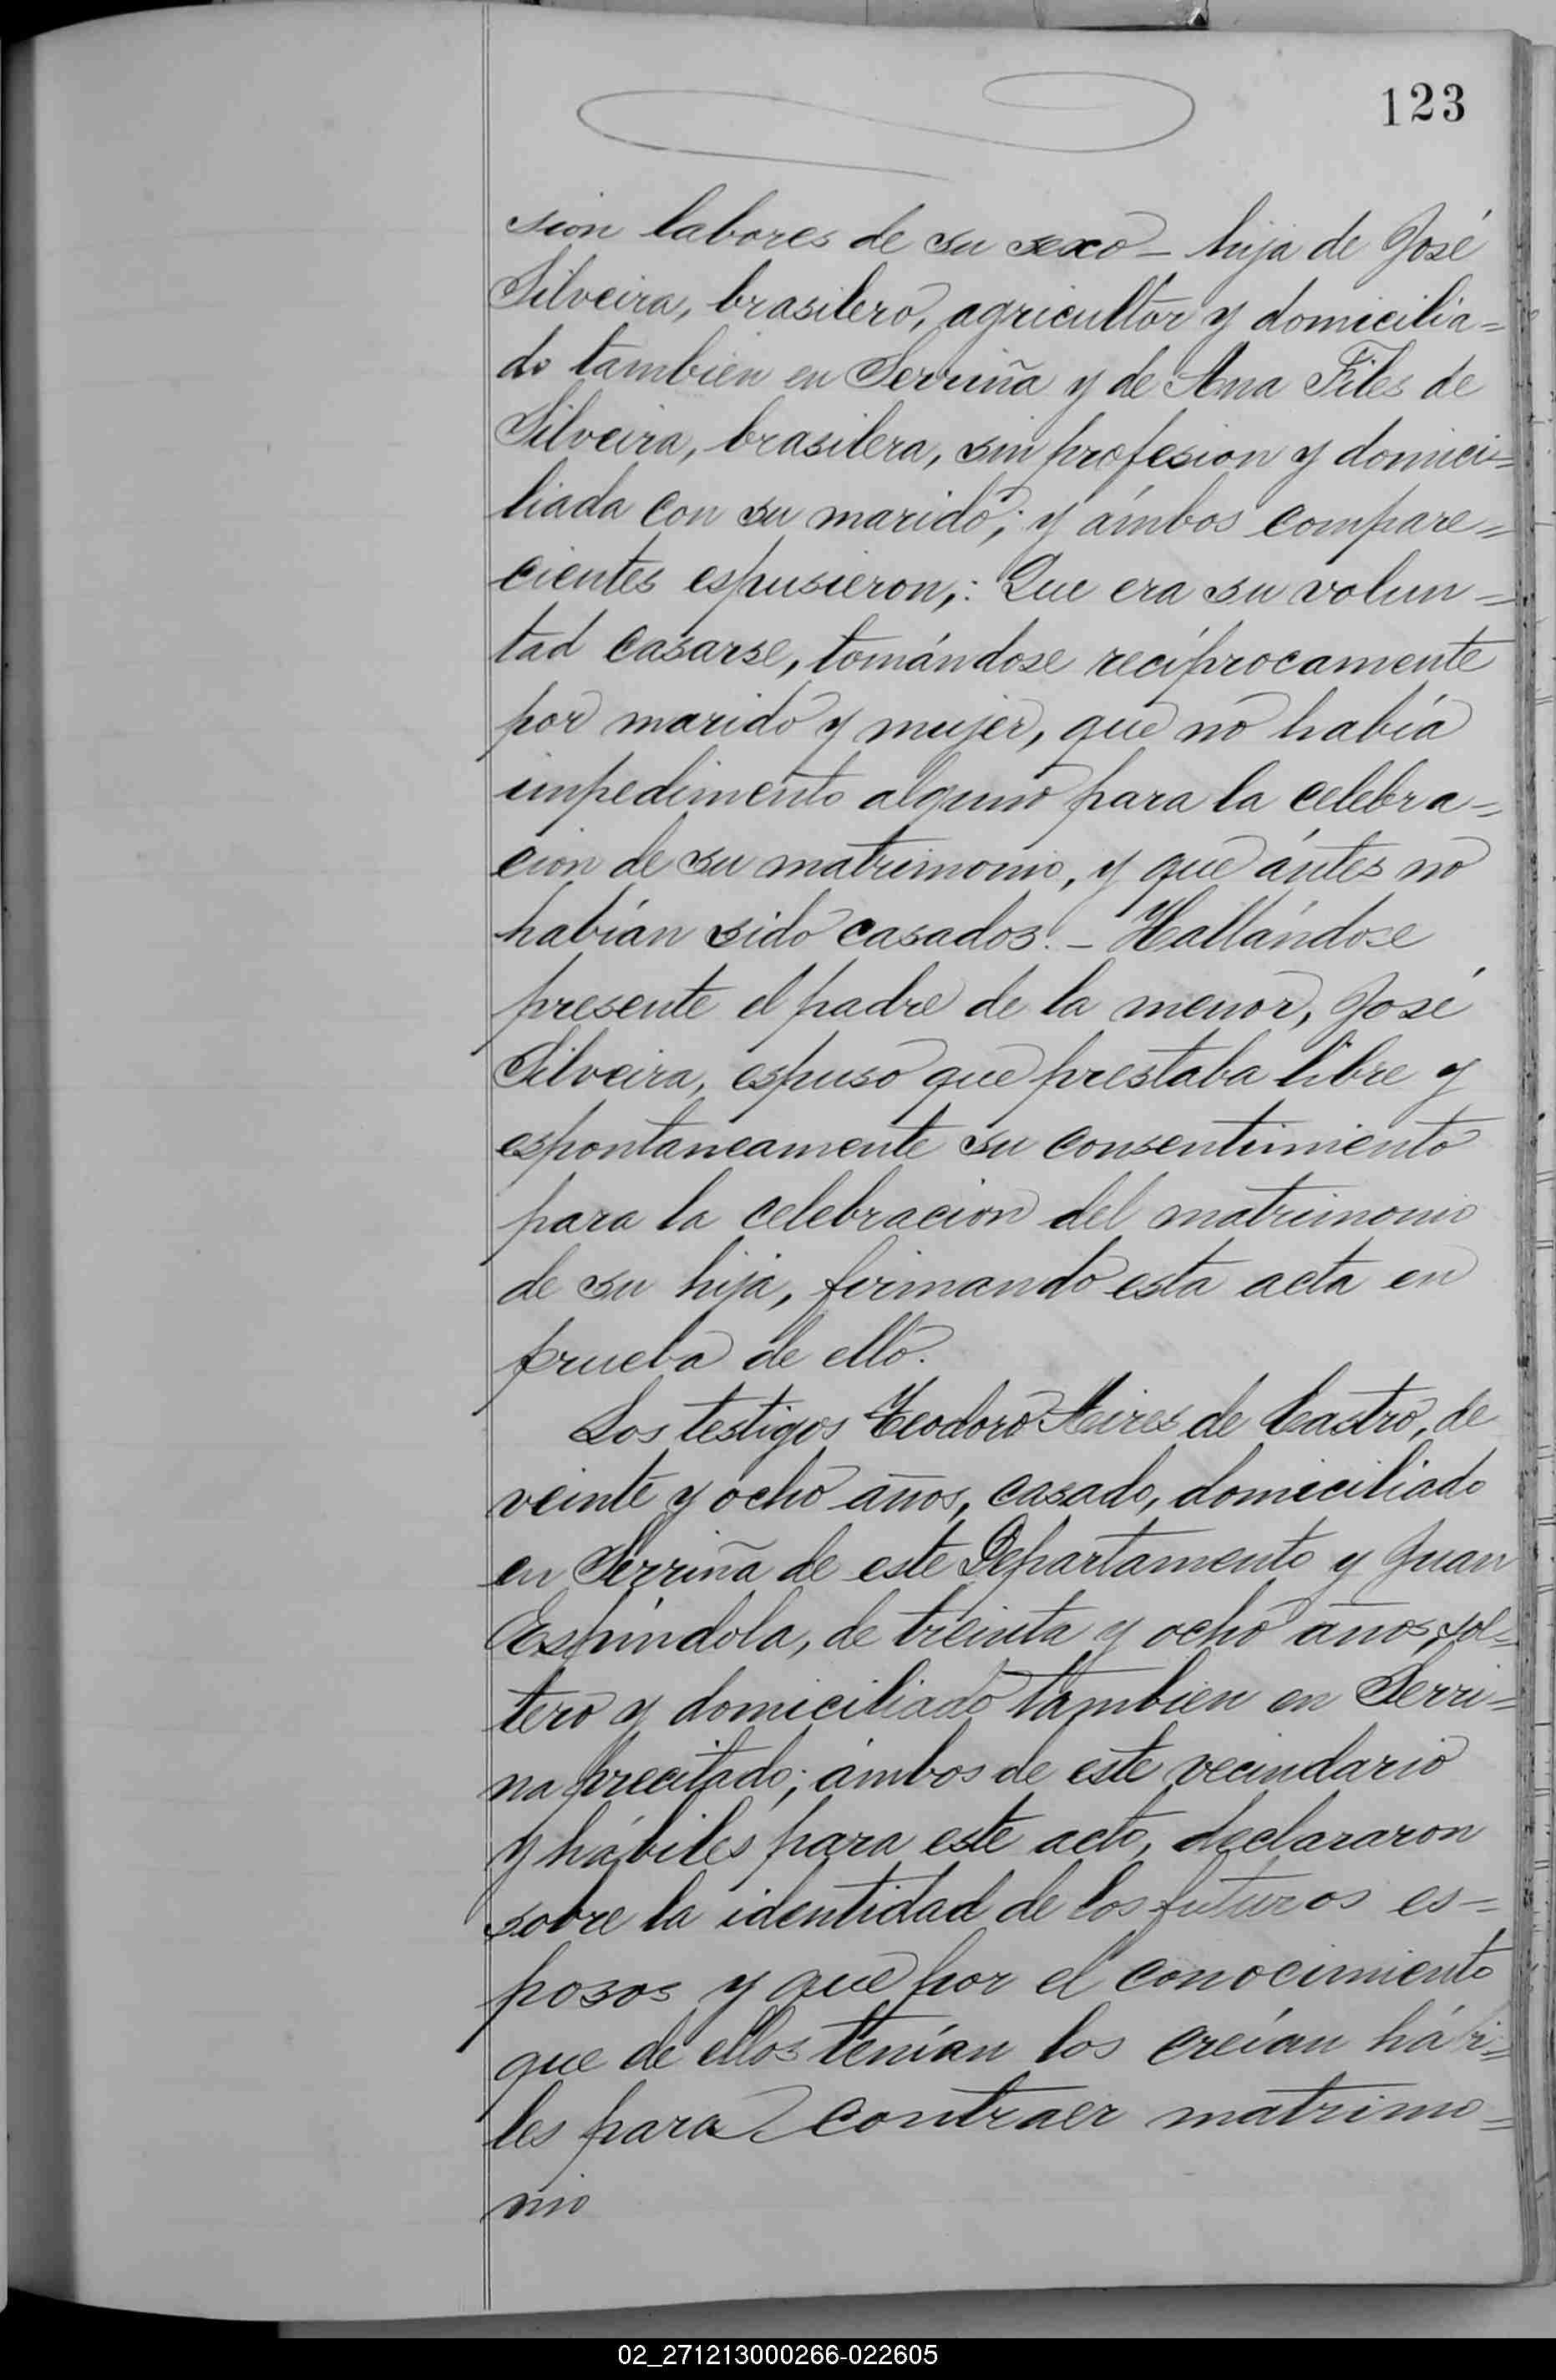 123
sion labores de su sexo – hija de José
Silveira, brasilero, agricultor y domicilia=
do tambien en Serriña y de Ana Files de
Silveira, brasilera, sin profesion y domici=
liada con su marido; y ámbos compare=
cientes espusieron,: Que era su volun=
tad casarse, tomándose recíprocamente
por marido y mujer, que no había
impedimento alguno para la celebra=
cion de su matrimonio, y que ántes no
habían sido casados. – Hallándose
presente el padre de la menor, José
Silveira, espuso que prestaba libre y
espontaneamente su consentimiento
para la celebracion del matrimonio
de su hija, firmando esta acta en
prueba de ello.
Los testigos Teodoro Aires de Castro, de
veinte y ocho años, casado, domiciliado
en Serriña de este Departamento y Juan
Espíndola, de treinta y ocho años, sol=
tero y domiciliado tambien en Serri=
na precitado; ámbos de este vecindario
y hábiles para este acto, declararon
sobre la identidad de los futuros es=
posos y que por el conocimiento
que de ellos tenían los creían hábi=
les para contraer matrimo=
nio
02_271213000266-022605